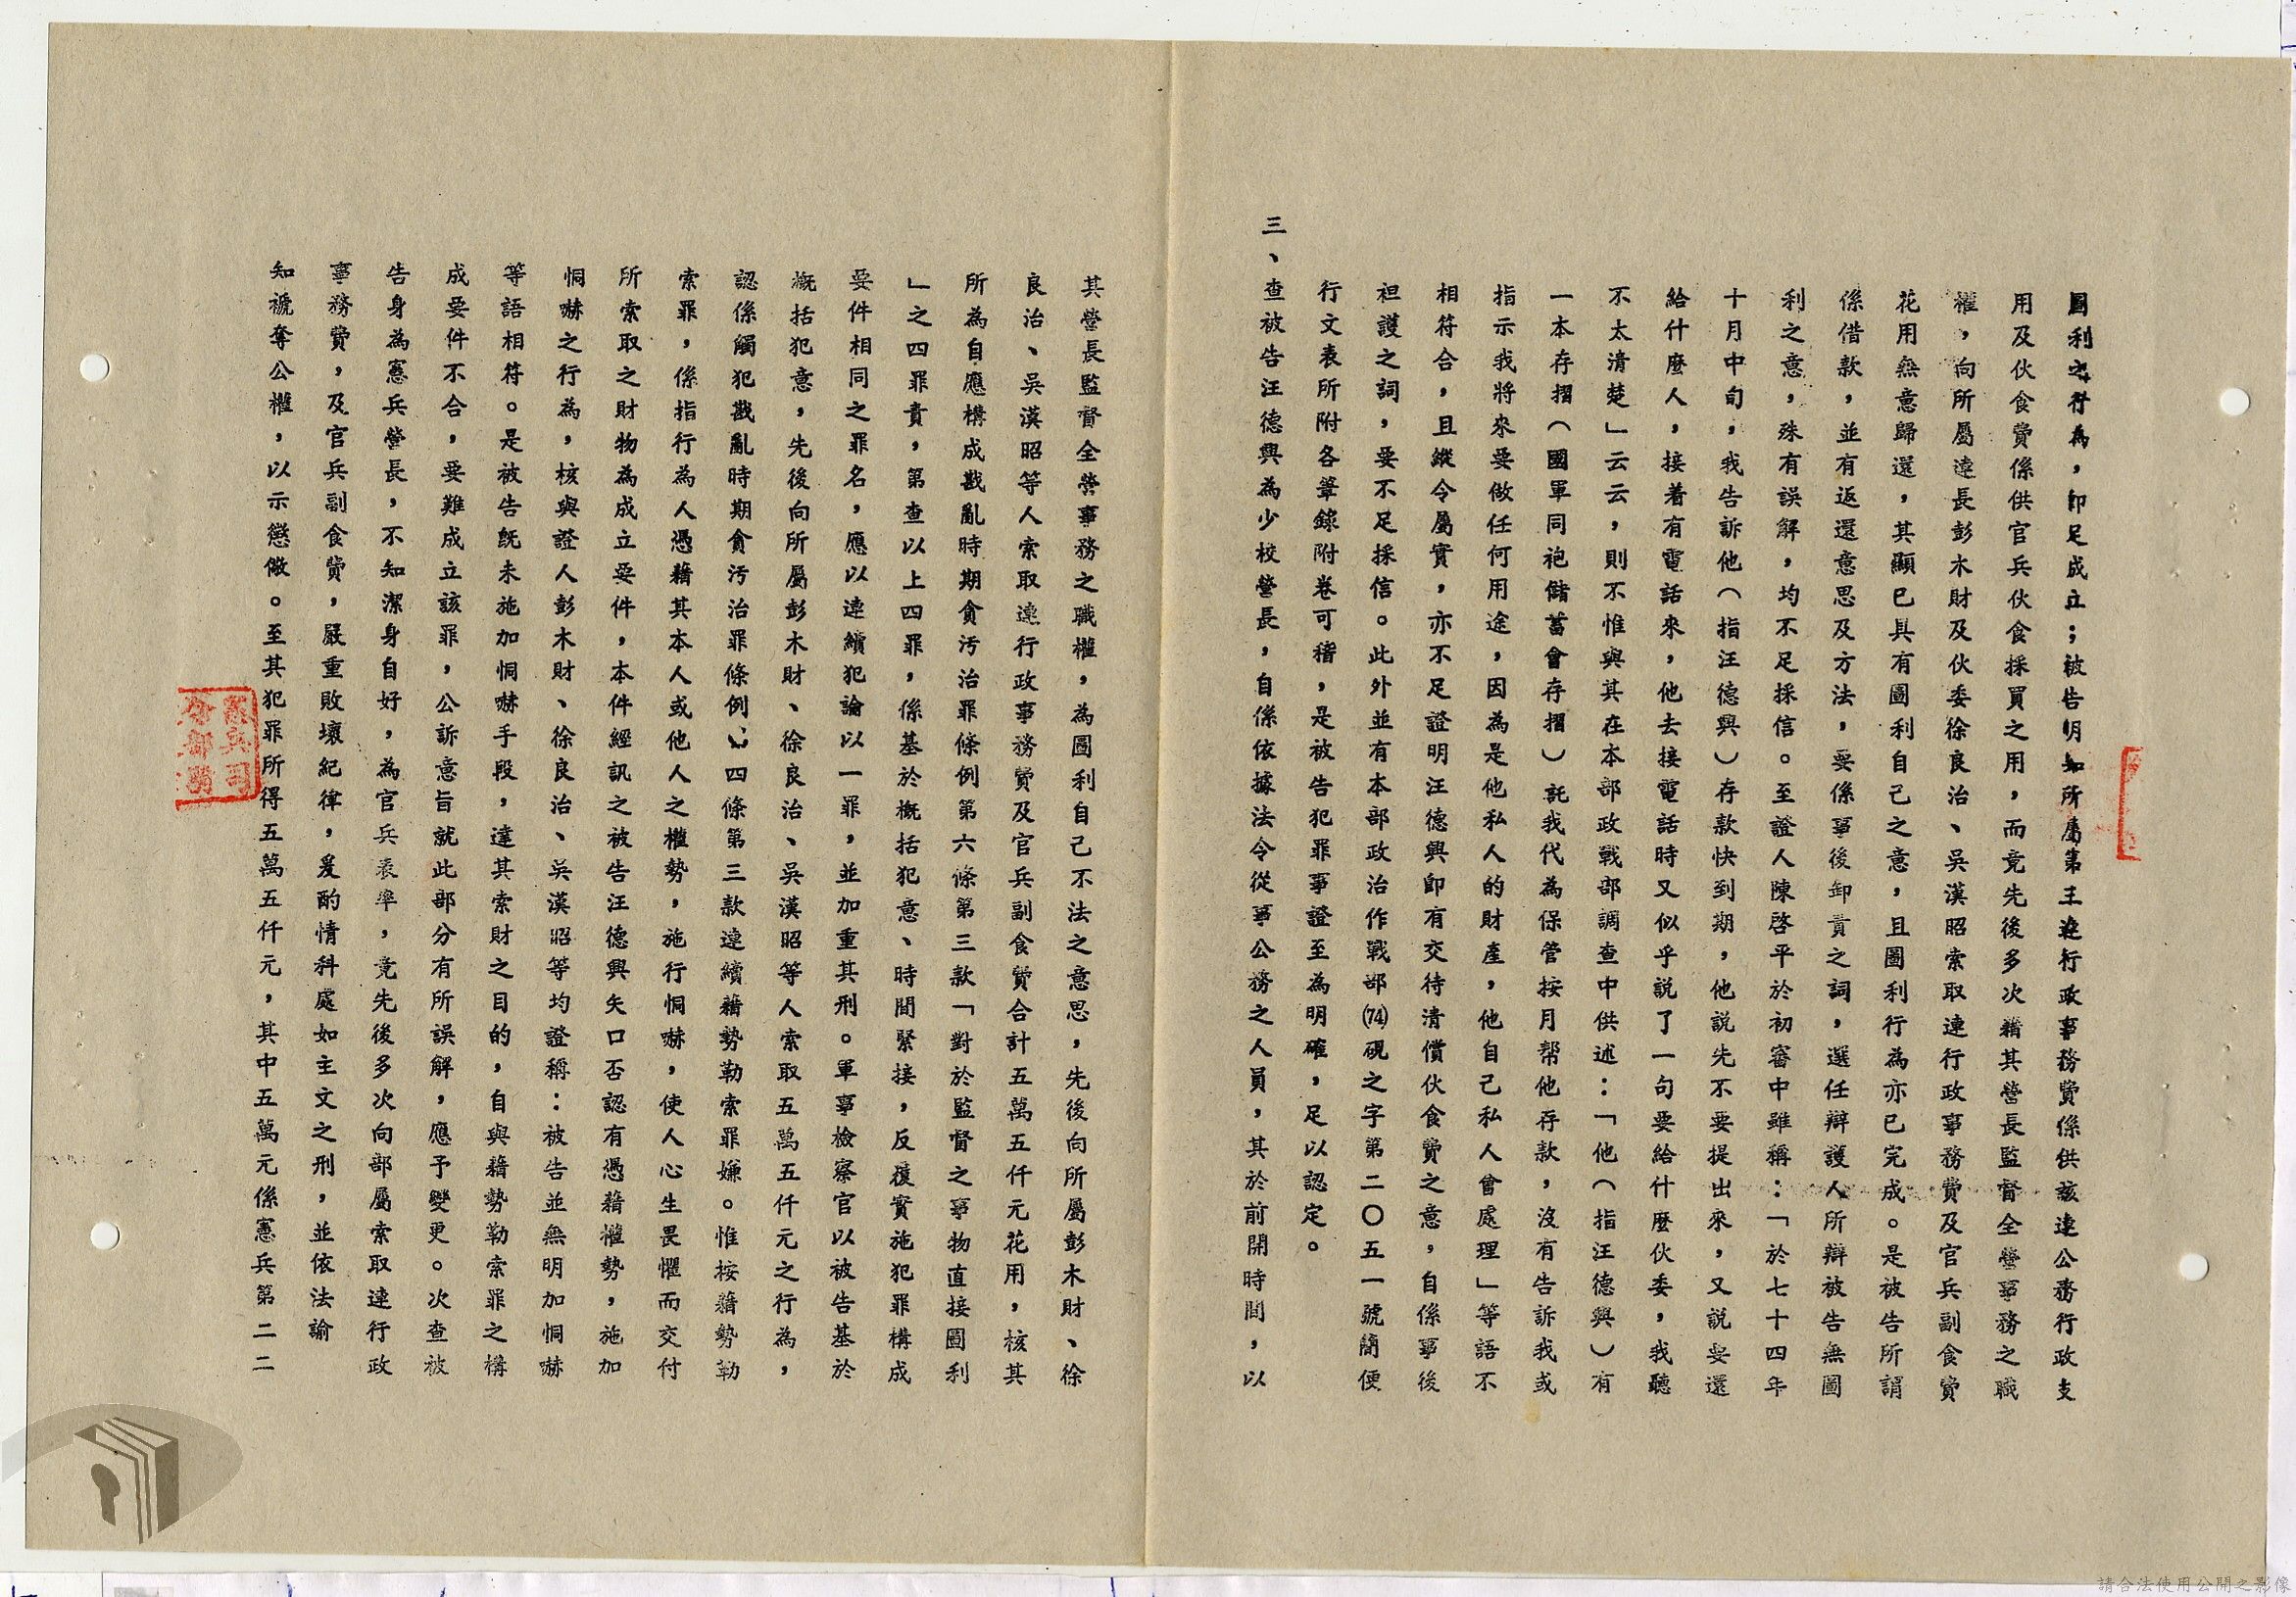 圖利之行為，即足成立；被告明知所屬第三連行政事務費係供該連公務行政支
用及伙食費係供官兵伙食採買之用，而竟先後多次藉其營長監督全營事務之職
權，向所屬連長彭木財及伙委徐良治、吳漢昭索取連行政事務費及官兵副食費
花用無意歸還，其顯已具有圖利自己之意，且圖利行為亦已完成。是被告所謂
係借款，並有返還意思及方法，要係事後卸責之詞，選任辯護人所辯被告無圖
利之意，殊有誤解，均不足採信。至證人陳啓平於初審中雖稱：「於七十四年
十月中旬，我告訴他（指汪德興）存款快到期，他說先不要提出來，又說要還
給什麼人，接着有電話來，他去接電話時又似乎說了一句要給什麼伙委，我聽
不太清楚」云云，則不惟與其在本部政戰部調查中供述：「他（指汪德興）有
一本存摺（國軍同袍儲蓄會存摺）託我代為保管按月帮他存款，沒有告訴我或
指示我將來要做任何用途，因為是他私人的財產，他自己私人會處理」等語不
相符合，且縱令屬實，亦不足證明汪德興即有交待清償伙食費之意，自係事後
袒護之詞，要不足採信。此外並有本部政治作戰部(74)硯之字第二〇五一號簡便
行文表所附各筆錄附卷可稽，是被告犯罪事證至為明確，足以認定。
三、查被告汪德興為少校營長，自係依據法令從事公務之人員，其於前開時間，以
其營長監督全營事務之職權，為圖利自己不法之意思，先後向所屬彭木財、徐
良治、吳漢昭等人索取連行政事務費及官兵副食費合計五萬五仟元花用，核其
所為自應構成戡亂時期貪污治罪條例第六條第三款「對於監督之事物直接圖利
」之四罪責，第查以上四罪，係基於概括犯意、時間緊接，反覆實施犯罪構成
要件相同之罪名，應以連續犯論以一罪，並加重其刑。軍事檢察官以被告基於
概括犯意，先後向所屬彭木財、徐良治、吳漢昭等人索取五萬五仟元之行為，
認係觸犯戡亂時期貪污治罪條例四條第三款連續藉勢勒索罪嫌。惟按藉勢勒
索罪，係指行為人憑藉其本人或他人之權勢，施行恫嚇，使人心生畏懼而交付
所索取之財物為成立要件，本件經訊之被告汪德興矢口否認有憑藉權勢，施加
恫嚇之行為，核與證人彭木財、徐良治、吳漢昭等均證稱：被告並無明加恫嚇
等語相符。是被告既未施加恫嚇手段，達其索財之目的，自與藉勢勒索罪之構
成要件不合，要難成立該罪，公訴意旨就此部分有所誤解，應予變更。次查被
告身為憲兵營長，不知潔身自好，為官兵表率，竟先後多次向部屬索取連行政
事務費，及官兵副食費，嚴重敗壞紀律，爰酌情科處如主文之刑，並依法諭
知褫奪公權，以示懲儆。至其犯罪所得五萬五仟元，其中五萬元係憲兵第二二
請合法使用公開之影像